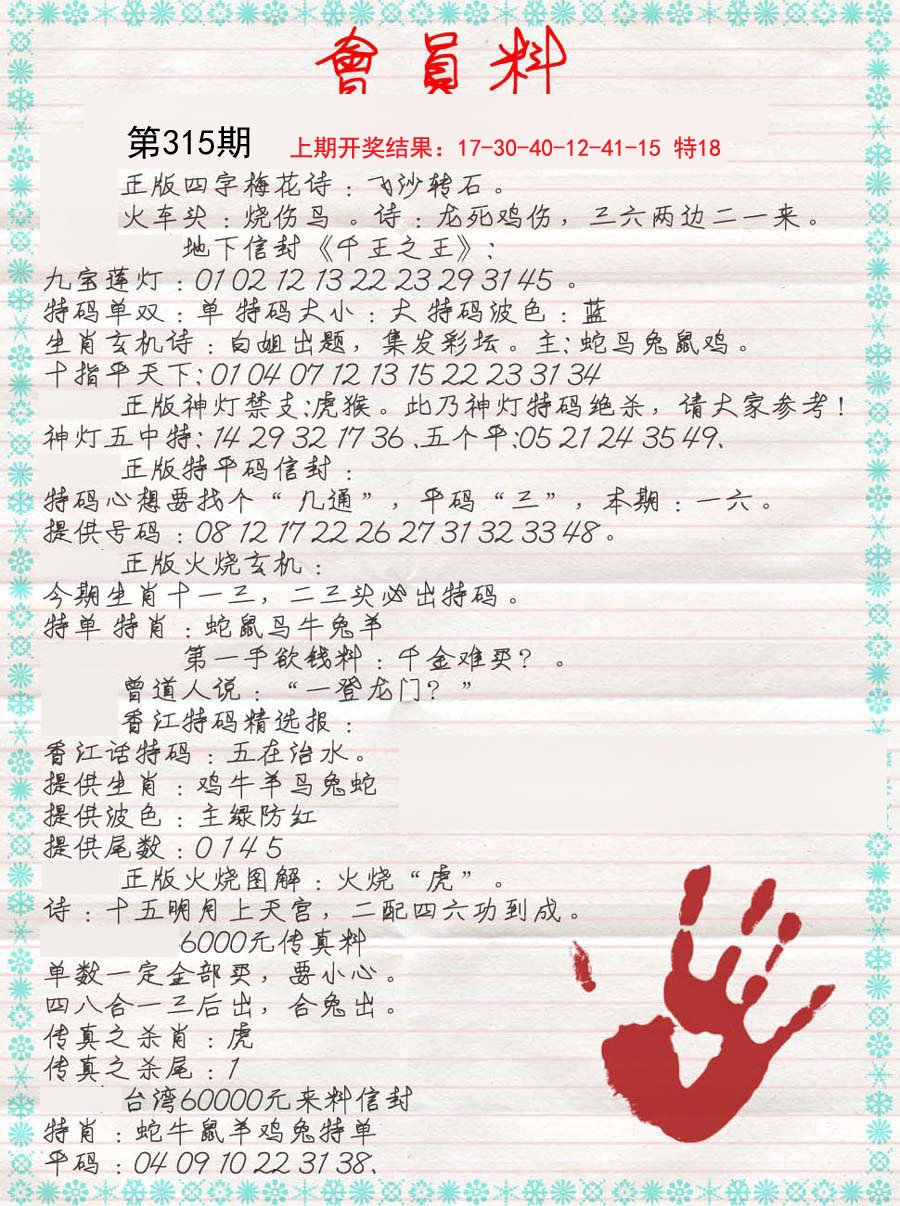 會員料
第315期 上期开奖结果：17-30-40-12-41-15 特18
正版四字梅花诗：飞沙转石。
火车头：烧伤鸟。诗：龙死鸡伤，三六两边二一来。
地下信封《千王之王》：
九宝莲灯：01 02 12 13 22 23 29 31 45 。
特码单双：单 特码大小：大 特码波色：蓝
生肖玄机诗：白姐出题，集发彩坛。主：蛇马兔鼠鸡。
十指平天下：01 04 07 12 13 15 22 23 31 34
正版神灯禁支：虎猴。此乃神灯特码绝杀，请大家参考！
神灯五中特：14 29 32 17 36 、五个平：05 21 24 35 49、
正版特平码信封：
特码心想要找个“ 几通”，平码“三”，本期：一六。
提供号码：08 12 17 22 26 27 31 32 33 48 。
正版火烧玄机：
今期生肖十一三，二三头必出特码。
特单 特肖：蛇鼠马牛兔羊
第一手欲钱料：千金难买？ 。
曾道人说：“一登龙门？”
香江特码精选报：
香江话特码：五在治水。
提供生肖：鸡牛羊马兔蛇
提供波色：主绿防红
提供尾数：0 1 4 5
正版火烧图解：火烧“虎”。
诗：十五明月上天宫，二配四六功到成。
6000元传真料
单数一定全部买，要小心。
四八合一三后出，合兔出。
传真之杀肖：虎
传真之杀尾：1
台湾60000元来料信封
特肖：蛇牛鼠羊鸡兔特单
平码：04 09 10 22 31 38、